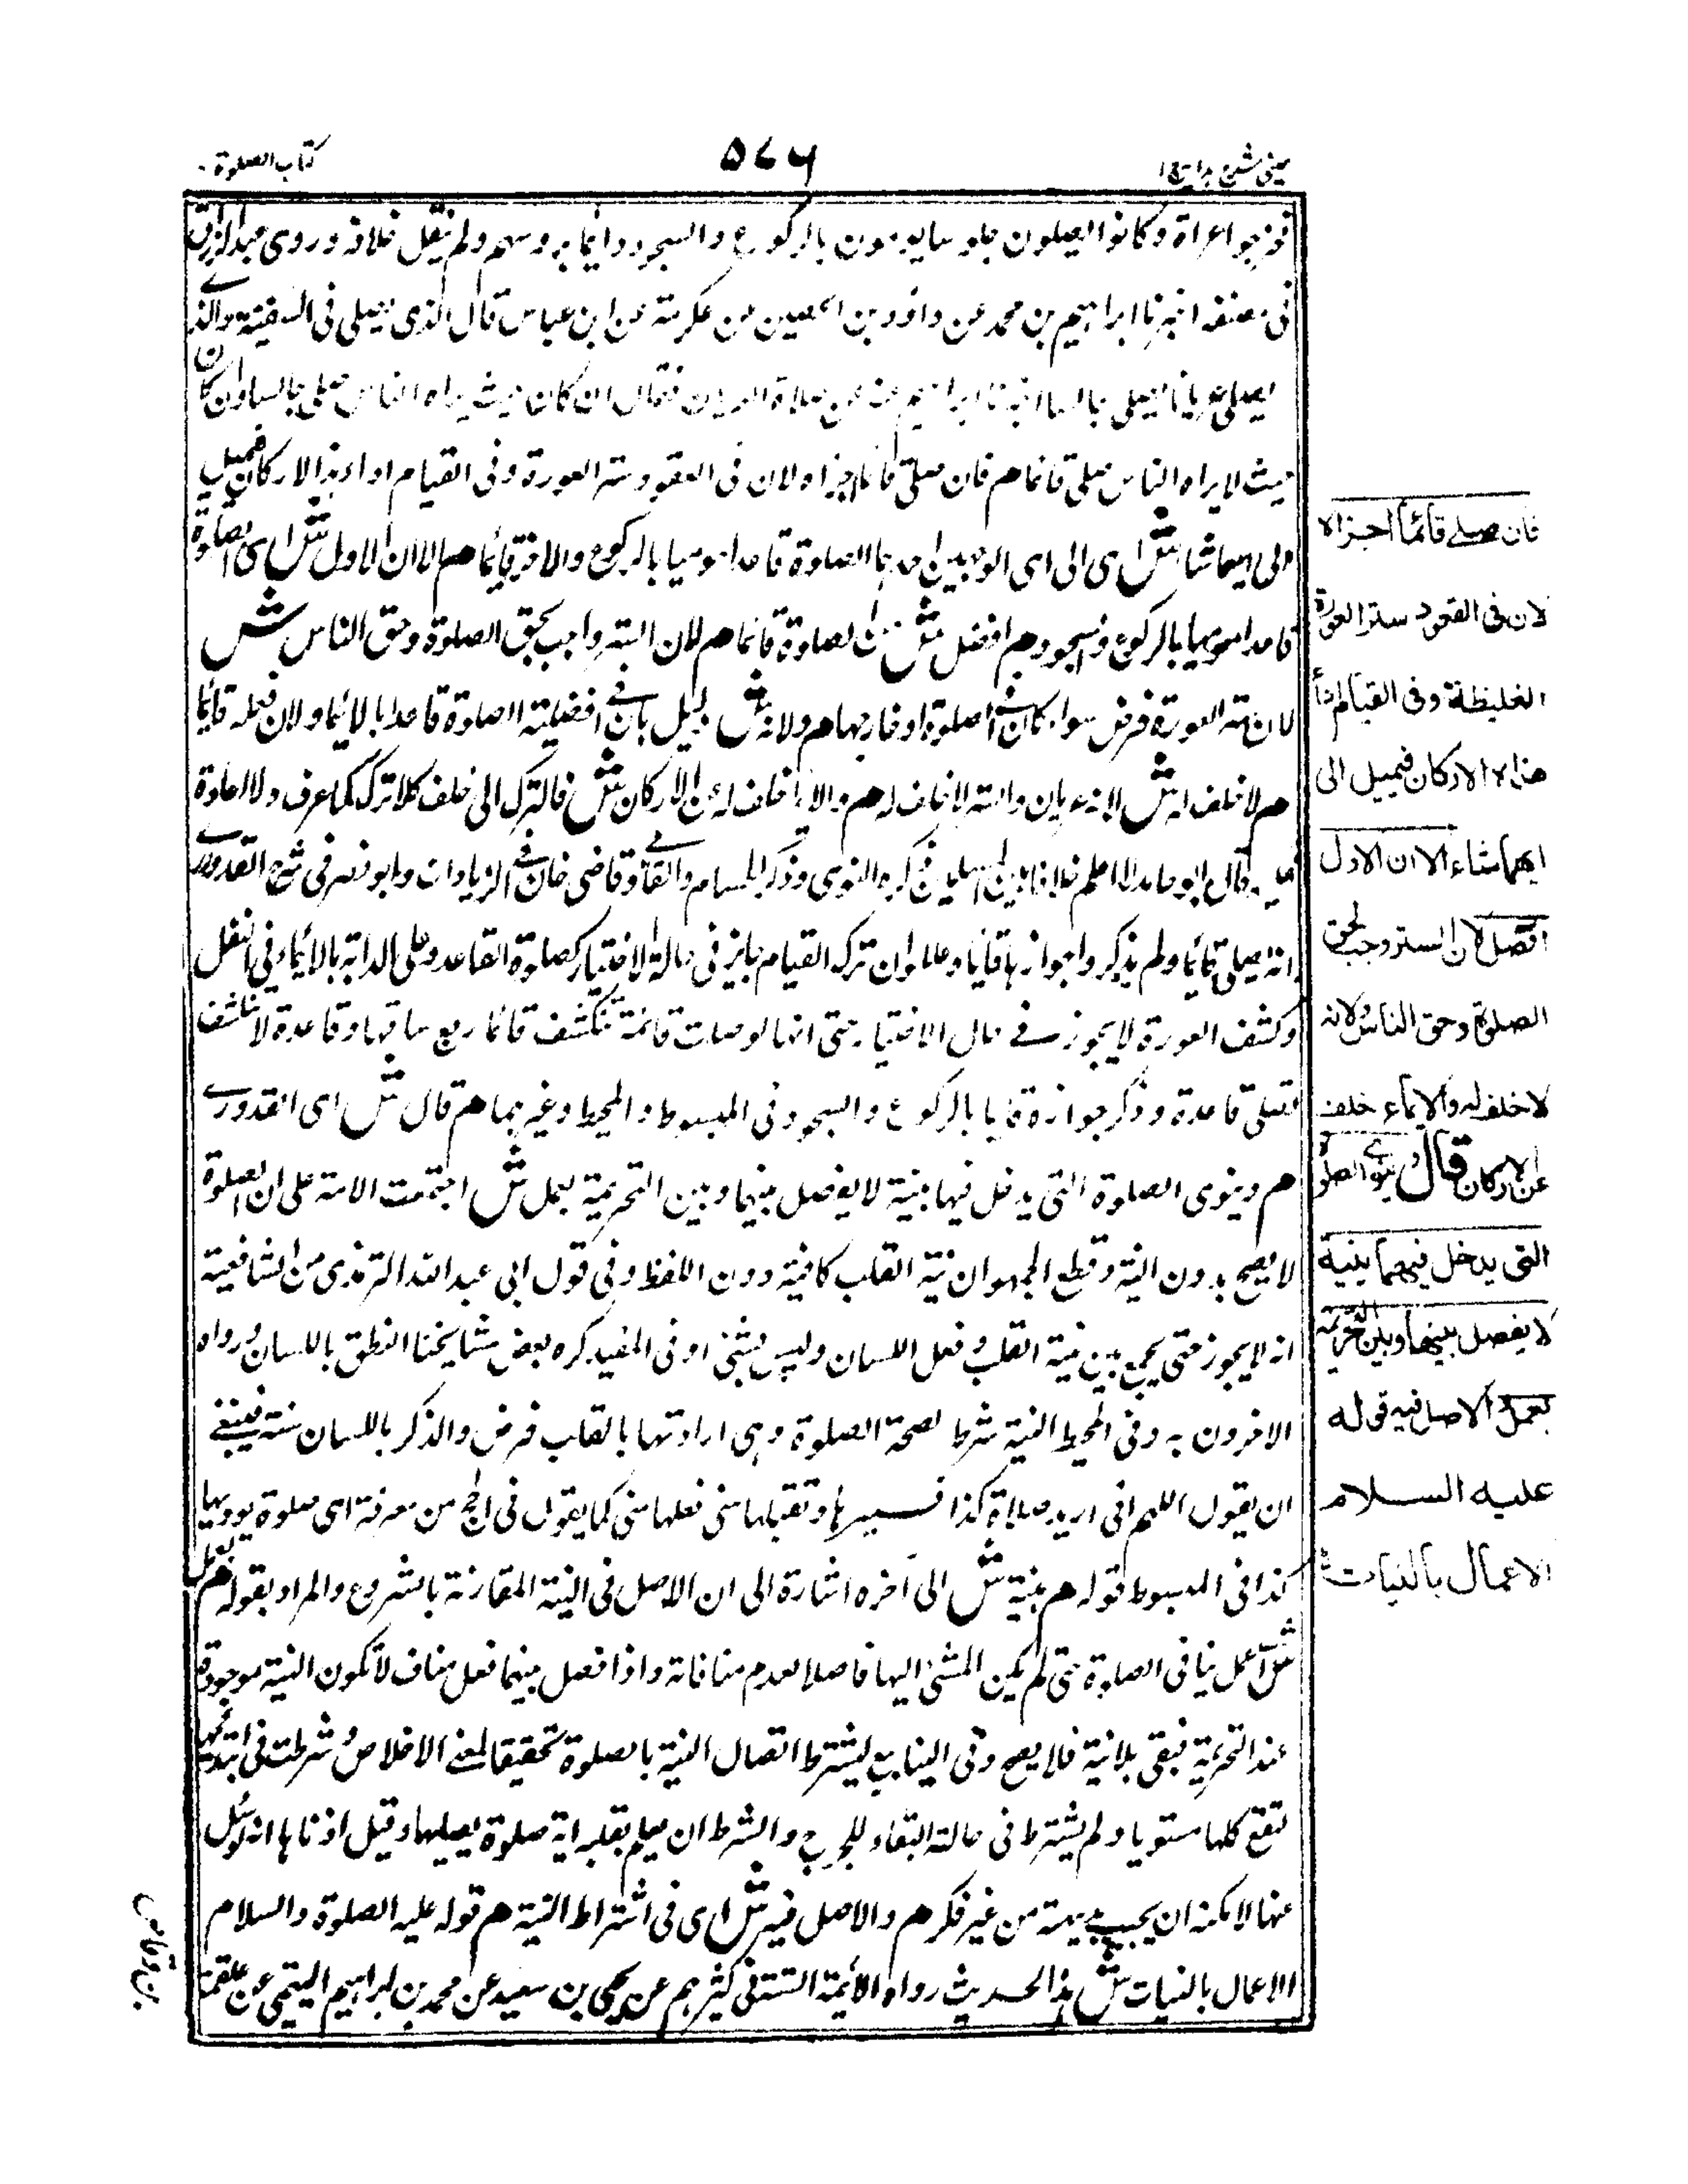 عینی شرح هدایة ج ۱
۵۷۶
كتاب الصلوة
فخرجوا عراة وكانوا يصلون جلوسا يومون بالركوع والسجود وايماء بروسهم ولم ينقل خلافه وروى عبد الرزاق
فى مصنفه اخبرنا ابراهيم بن محمد عن داؤد بن الحصين عن عكرمة عن ابن عباس قال الذى يصلى فى السفينة والذى
يصلى عريانا يصلى جالسا اخبرنا ابراهيم عن صلاة العريان فقال ان كان حيث يراه الناس صلى جالسا وان كان
حيث لا يراه الناس صلى قائما هم فان صلى قائما اجزاه لان فى القعود ستر العورة وفى القيام اداء هذه الاركان فيميل
الى ايهما شاء ش اى الى اى الوجهين احدهما الصلوة قاعدا موميا بالركوع والاخر قائما هم الا ان الاول ش اى الصلوة
قاعدا موميا بالركوع والسجود هم افضل ش من الصلوة قائما هم لان الستر واجب بحق الصلوة وحق الناس ش
لان ستر العورة فرض سواء كان فى الصلوة او خارجها هم ولانه ش دليل ثان فى افضلية الصلوة قاعدا بالايماء ولان فعله قائما
هم لا خلف له ش لانه عريان والستر لا خلف له هم والايماء خلف له عن الاركان ش فالترك الى خلف كلا ترك كما عرف ولا اعادة
عليه قال ابو حامد لا اعلم خلافا بين المسلمين ذكره النووى وذكر الحسام والقاضى خان فى الزيادات وابو نصر فى شرح القدورى
انه يصلى قائما ولم يذكروا جوازها قائما وعللوا ان ترك القيام جائز فى حالة الاختيار كصلوة القاعد وعلى الدابة بالايماء فى النفل
وكشف العورة لا يجوز فى حال الاختيار حتى انها لو صلت قائمة تنكشف قائما ربع ساقها وقاعدة لا تنكشف
فتصلى قاعدة وذكر جوازه قائما بالركوع والسجود فى المبسوط والمحيط وغيرهما هم قال ش اى القدورى
هم وينوى الصلوة التى يدخل فيها بنية لا يفصل بينها وبين التحريمة بعمل ش اجتمعت الامة على ان الصلوة
لا يصح بدون النية وقطع الجمهور ان نية القلب كافية دون اللفظ وفى قول ابى عبد الله الترمذى من الشافعية
انه لا يجوز حتى يجمع بين نية القلب وفعل اللسان وليس بشئ وفى المفيد كره بعض مشايخنا النطق باللسان ورواه
الاخرون به وفى المحيط النية شرط لصحة الصلوة وهى ارادتها بالقلب فرض والذكر باللسان سنة فينبغى
ان يقول اللهم انى اريد صلاة كذا فيسرها وتقبلها منى فعلها منى كما يقول فى الحج من معرفة اى صلوة يوديها
كذا فى المبسوط قوله هم بنية ش الى آخره اشارة الى ان الاصل فى النية المقارنة بالشروع والمراد بقوله هم بعمل
ش عمل ينافى الصلوة حتى لم يكن المشى اليها فاصلا لعدم منافاته واذا فصل بينهما فعل مناف لا تكون النية موجودة
عند التحريمة فبقى بلانية فلا يصح وفى الينابيع ليشترط اتصال النية بالصلوة تحقيقا لمعنى الاخلاص وشرطت فى ابتدائها
لتقع كلها مستويا ولم يشترط فى حالة البقاء للحرج والشرط ان يعلم بقلبه اية صلوة يصليها وقيل ادناها انه لو سئل
عنها لامكنه ان يجيب بديهة من غير فكر هم والاصل فيه ش اى فى اشتراط النية هم قوله عليه الصلوة والسلام
الاعمال بالنيات ش هذا الحديث رواه الائمة الستة فى كتبهم عن يحيى بن سعيد عن محمد بن ابراهيم التيمى عن علقمة
بن وقاص
فان صلے قائماً اجزاه
لان فى القعود ستر العورة
الغليظة وفى القيام اداء
هذه الاركان فيميل الى
ايهما شاء الا ان الاول
افضل لان الستر وجب لحق
الصلوة وحق الناس ولانه
لا خلف له والايماء خلف
عن الاركان قال وينوى الصلوة
التى يدخل فيها بنية
لا يفصل بينها وبين التحريمة
بعمل والاصل فيه قوله
عليه السلام
الاعمال بالنيات